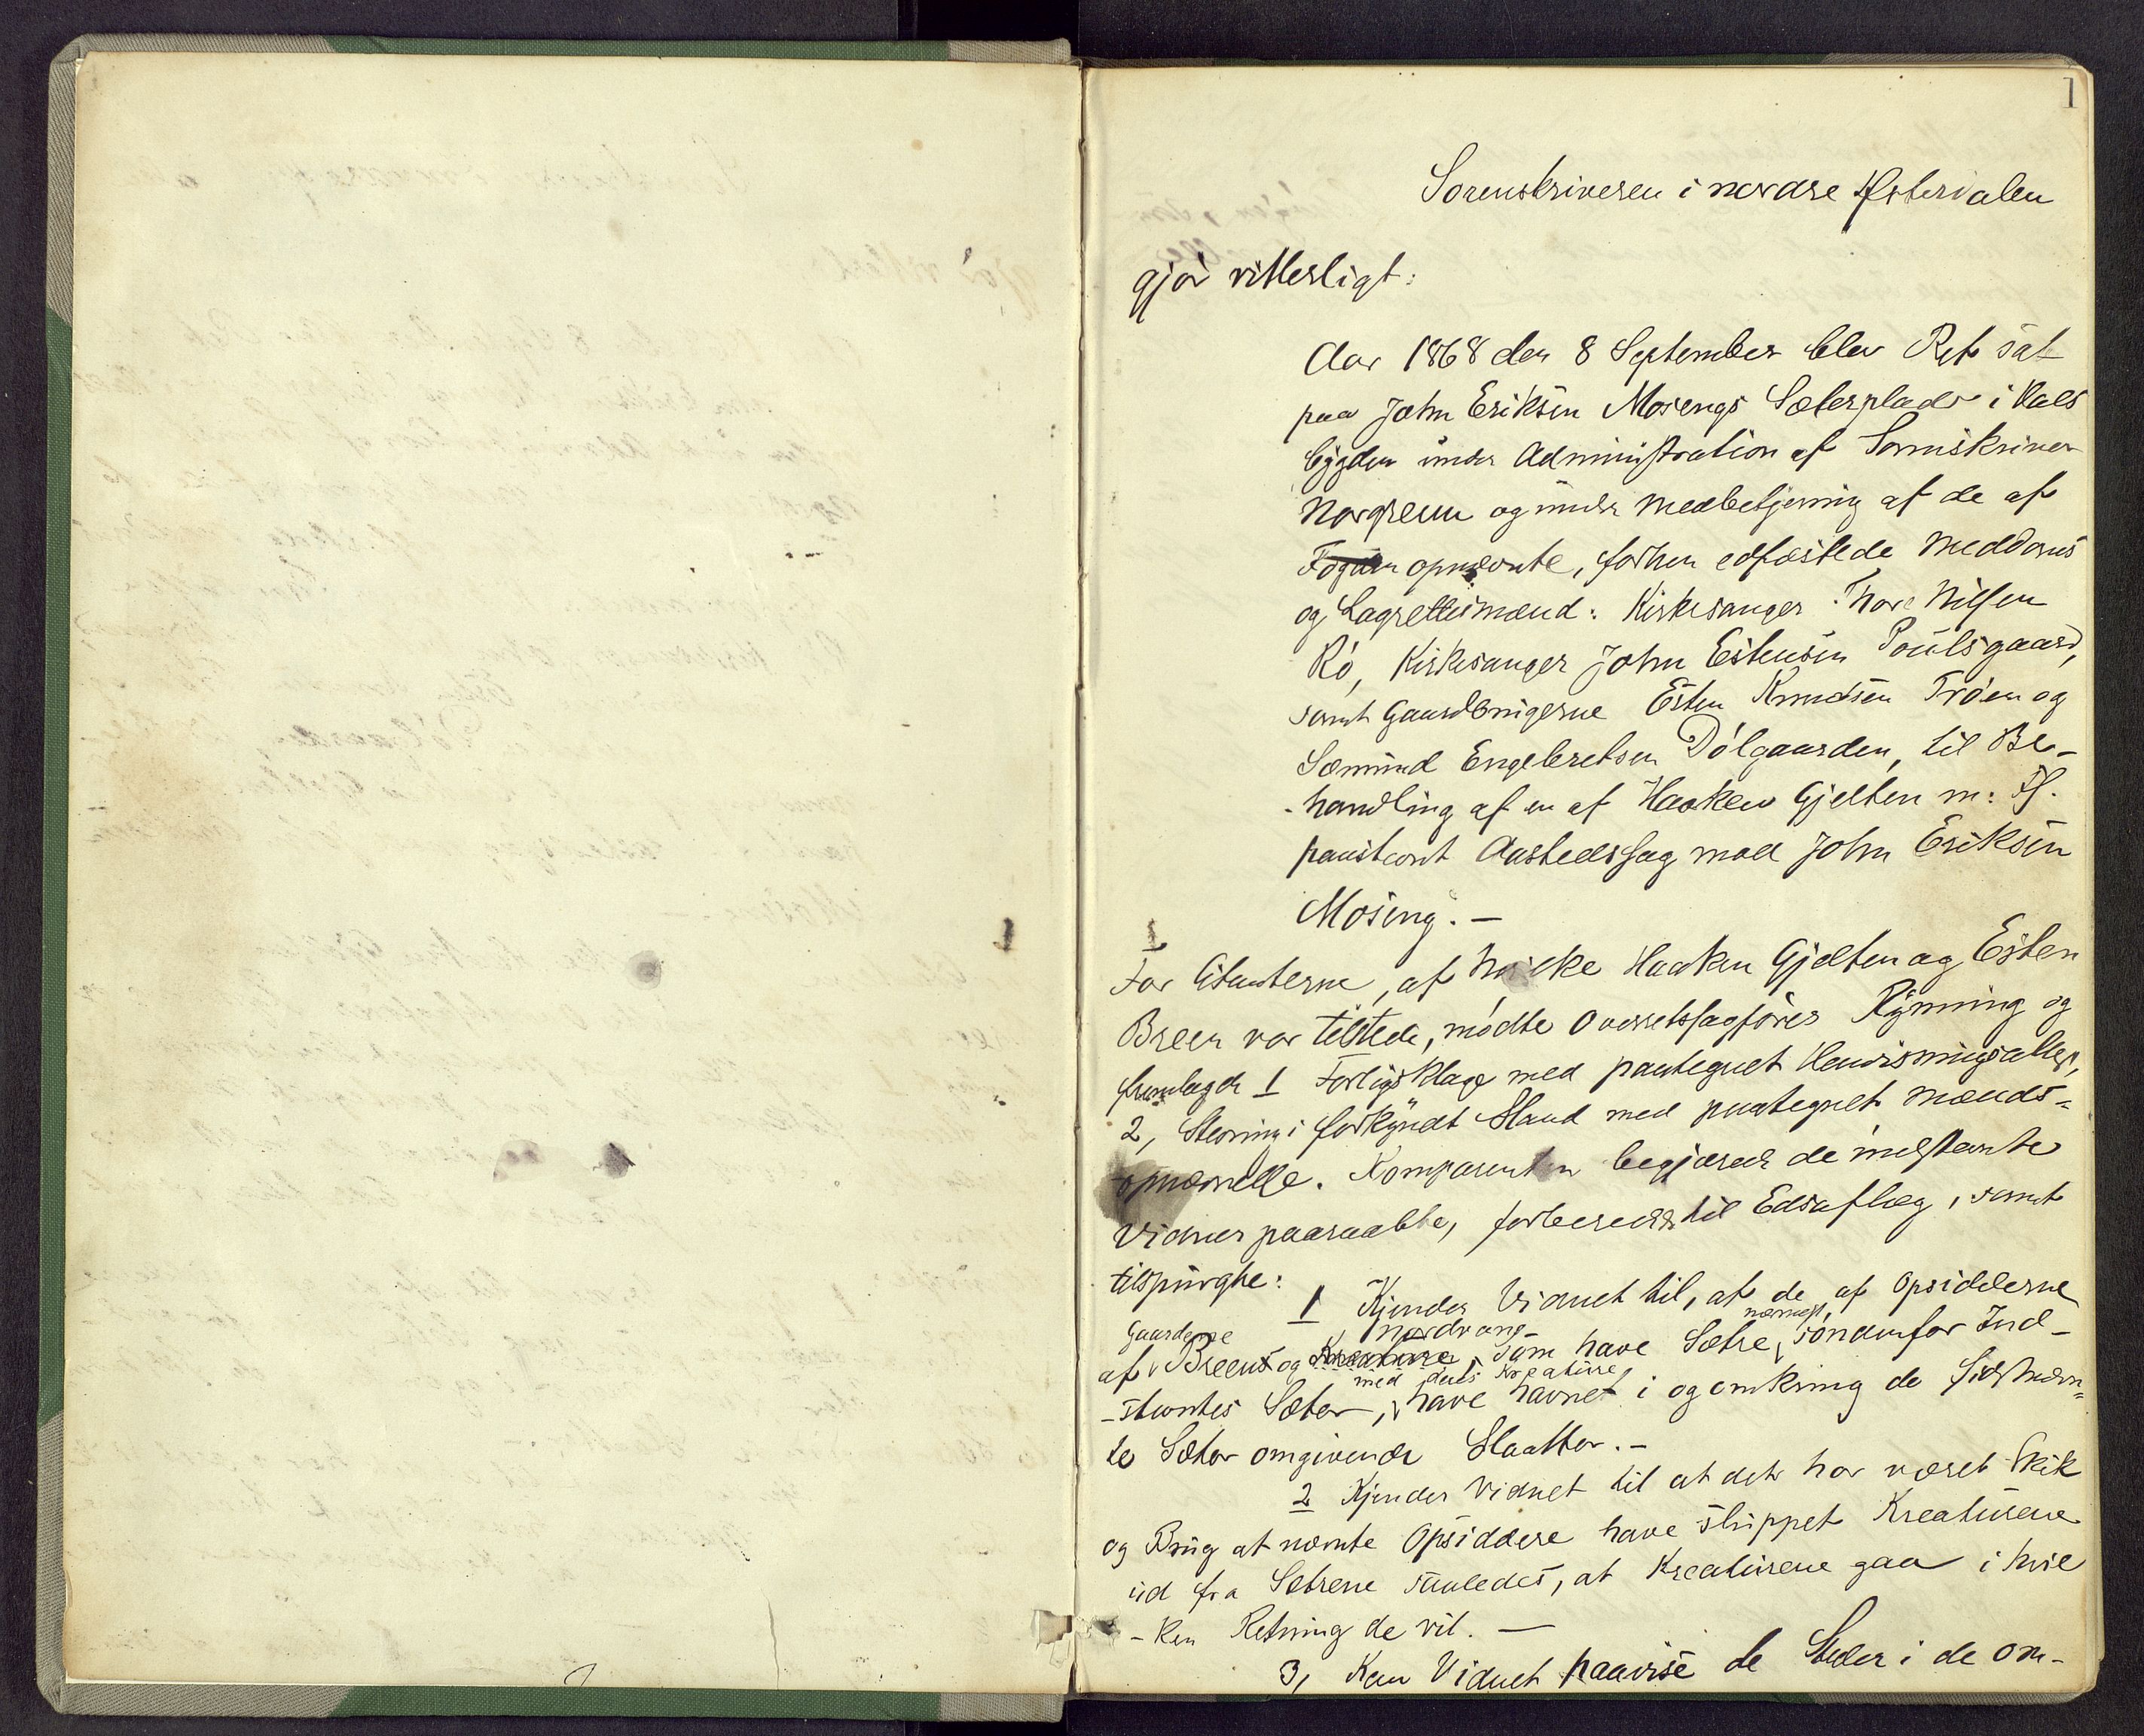 1
Sorenskriveren i nordre Østerdalen
gjør vitterligt:
Aar 1868 den 8 September blev Ret sat
paa John Eriksen Mosengs Sæterplads i Vals
bygden under Administration af Sorenskriver
Norgrenn og under Medbetjening af de af
Fogden opnævnte, forhen edfæstede Meddoms
og Lagrettesmænd: Kirkesanger Thore Nilsen
Rø, Kirkesanger John Estensen Poulsgaard,
samt Gaardbrugerne Esten Knudsen Trøen og
Sæmund Engebretsen Dølgaarden, til Be-
-handling af en af Haaken Gjelten m: Fl.
paastævnt Aastedssag mod John Eriksen
Moseng. -
For Citanterne, af hvilke Haaken Gjelten og Esten
Breen var tilstede, mødte Overretssagfører Rynning og
fremlagde 1 Forligsklage med paategnet Henvisningsattest,
2, Stevning i forkyndt Stand med paategnet Mænds=
opnævnelse. Komparenten begjærede de indstævnte
Vidner paaraabte, forberedede til Edsaflæg, samt
tilspurgte:
1 Kjender Vidnet til, at de af Opsidderne
Gaardene Nordvang nærmest
af Breen og Kreaturene, som have Sætre, søndenfor Ind-
med deres Kreature
-stevntes Sæter, have havnet i og omkring de sidstnævn=
te Sæter omgivende Slaatter. -
2 Kjender Vidnet til at det har været Skik
og Brug at nævnte Opsiddere have slippet Kreaturene
ud fra Sætrene saaledes, at Kreaturene gaa i hvil
-ken Retning de vil. -
3, Kan Vidnet paavise de Steder i de om-